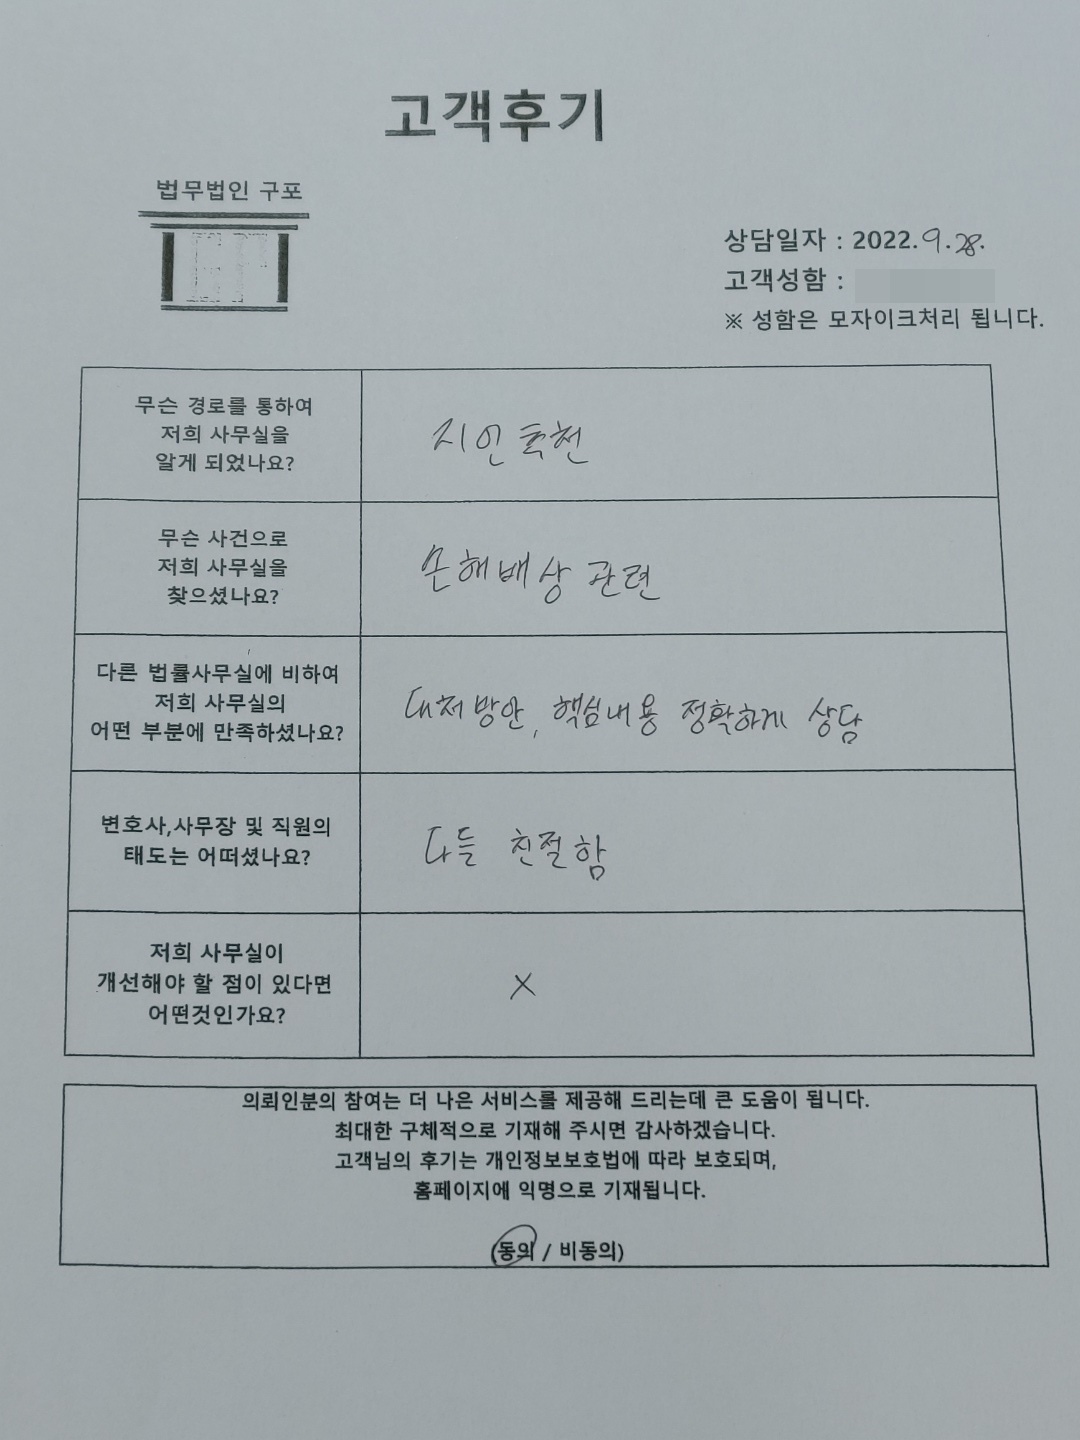 고객후기
법무법인 구포
상담일자 : 2022.9.28.
고객성함 :
※ 성함은 모자이크처리 됩니다.
무슨 경로를 통하여
저희 사무실을
알게 되었나요?
지인 추천
무슨 사건으로
저희 사무실을
찾으셨나요?
손해배상 관련
다른 법률사무실에 비하여
저희 사무실의
어떤 부분에 만족하셨나요?
대처방안, 핵심내용 정확하게 상담
변호사,사무장 및 직원의
태도는 어떠셨나요?
다들 친절함
저희 사무실이
개선해야 할 점이 있다면
어떤것인가요?
X
의뢰인분의 참여는 더 나은 서비스를 제공해 드리는데 큰 도움이 됩니다.
최대한 구체적으로 기재해 주시면 감사하겠습니다.
고객님의 후기는 개인정보보호법에 따라 보호되며,
홈페이지에 익명으로 기재됩니다.
(동의 / 비동의)